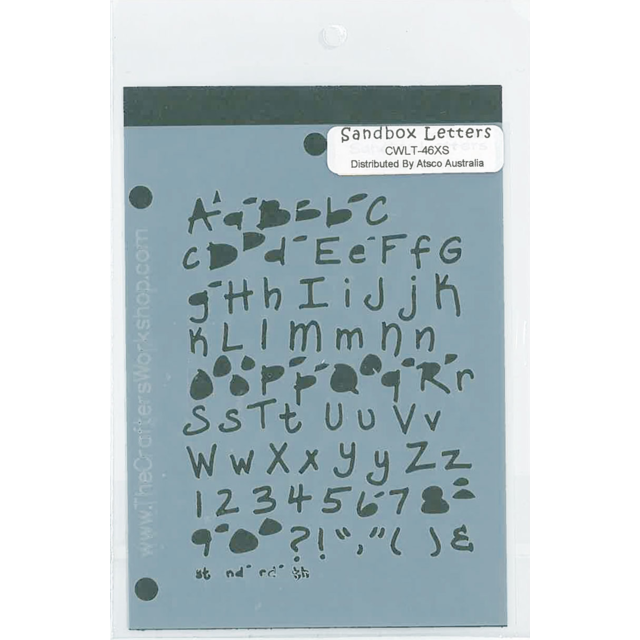 Sandbox Letters
CWLT-46XS
Distributed By Atsco Australia
www.TheCraftersWorkshop.com
A a B b C
c D d E e F f G
g H h I i J j K
k L l M m N n
O o P p Q q R r
S s T t U u V v
W w X x Y y Z z
1 2 3 4 5 6 7 8
9 0 ? ! " , " ( ) &
st nd rd th